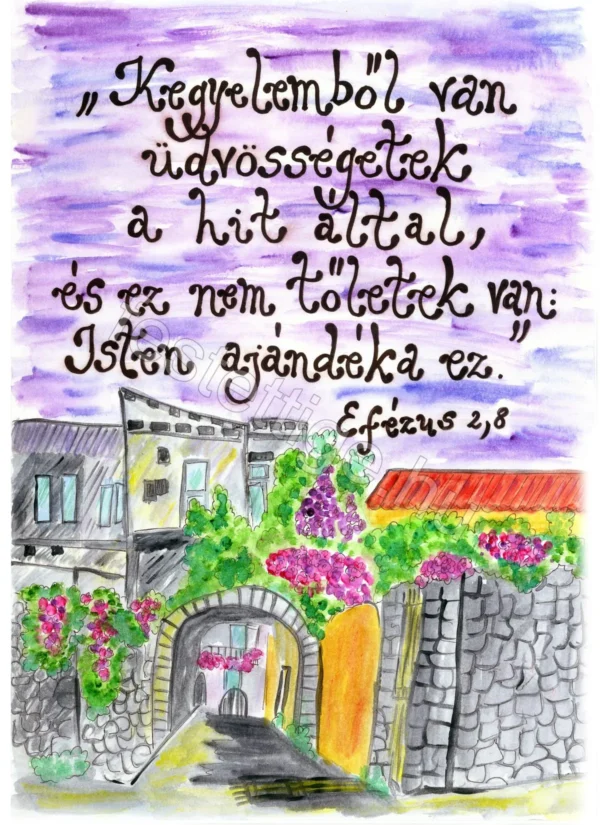 „Kegyelemből van
üdvösségetek
a hit által,
és ez nem tőletek van:
Isten ajándéka ez.”
Efézus 2,8